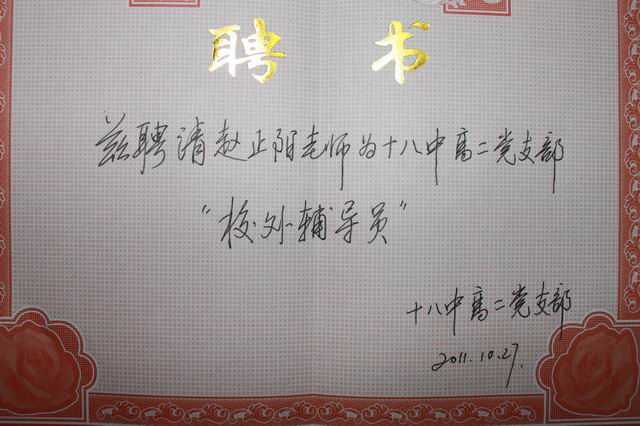 聘书
兹聘请赵正阳老师为十八中高二党支部
"校外辅导员"
十八中高二党支部
2011.10.27.